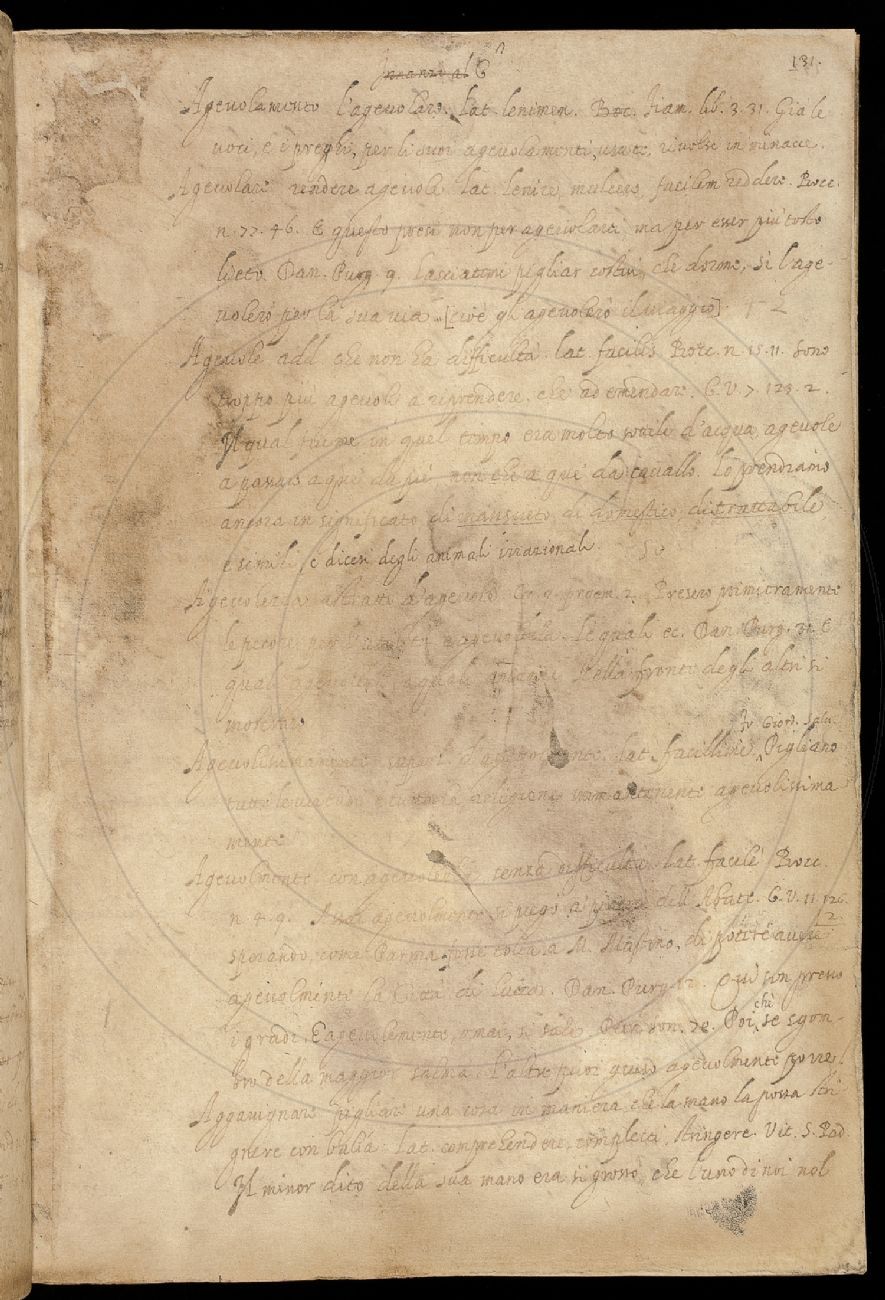 131.
Innanzi al G
Agevolamento l'agevolare. Lat. lenimen. Boc. fiam. lib. 3. 31. Gia le
voci, e i preghi, per li suoi agevolamenti, usate, rivolse in minacce.
Agevolare rendere agevole Lat. lenire, mulcere, facilem reddere. Bocc.
n. 77. 46. E questo presi non per agevolarti ma per esser più tosto
lieto. Dan. Purg. 9. Lasciatemi pigliar costui, che dorme, si l'age-
volerò per la sua via [cioè gli agevolerò il viaggio]
Agevole add. che non ha difficultà. lat. facilis Bocc. n. 15. 11. sono
troppo più agevoli a riprendere, che ad emendare. G. V. 7. 123. 2.
Il qual fiume in quel tempo era molto sottile d'acqua agevole
a passare a que' da piè, non che a que' da cavallo. Lo prendiamo
ancora in significato di mansueto, di domestico, di trattabile
e simili, e dicesi degli animali irrazionali.
Agevolezza astratto d'agevole. Presero primieramente
le pecore per l'utilità e agevolezza. le quali ec. Dan. Purg. 31. E
quali agevolezze, o quali avanzi Nella fronte degli altri si
mostraro
Fr. Giord. Salu.
Agevolissimamente superl. d'agevolmente. lat. facillime. Pigliano
tutte le immantenente agevolissima
mente
Agevolmente con agevolezza, senza difficultà. lat. facile Bocc.
n. 4. 9. Assai agevolmente si piegò a' piaceri dell'Abate. G. V. 11. 126. 2.
sperando, come Parma fosse tolta a M. Mastino, di potere avere
agevolmente la Città di Lucca. Dan. Purg. 12. Qui son presso
i gradi, E agevolemente, omai, si sale. Petr. son. 78. Poi, che se' sgom-
bro della maggior salma, L'altre puoi giuso agevolmente porre
Aggavignare pigliare una cosa in maniera che la mano la possa stri
gnere con balia. Lat. comprehendere, complecti, stringere. Vit. S. Pad.
Il minor dito della sua mano era si grosso, che l'uno di noi nol